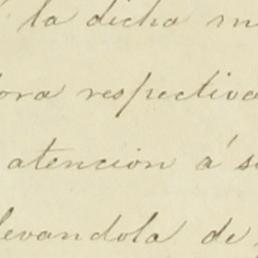 á la dicha m
ora respectiva
atencion á s
levandola de